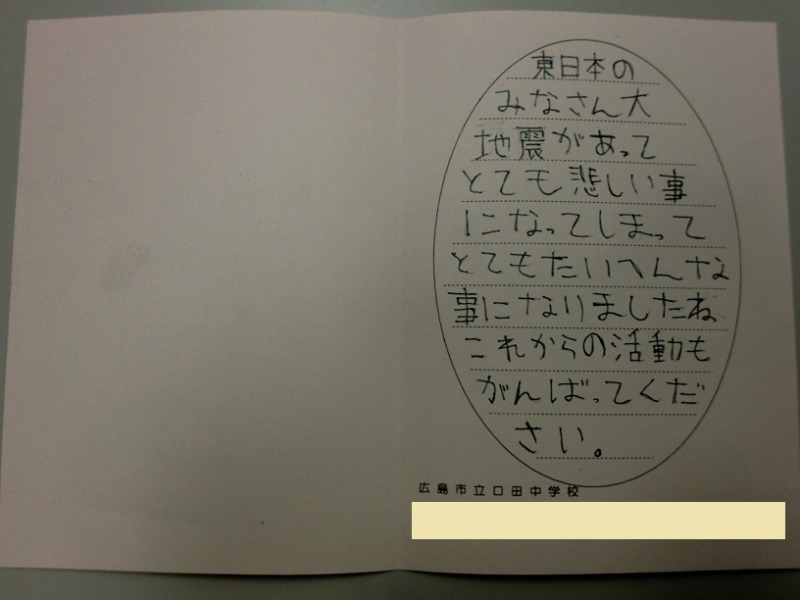 東日本の
みなさん大
地震があって
とても悲しい事
になってしまって
とてもたいへんな
事になりましたね
これからの活動も
がんばってくだ
さい。
広島市立口田中学校